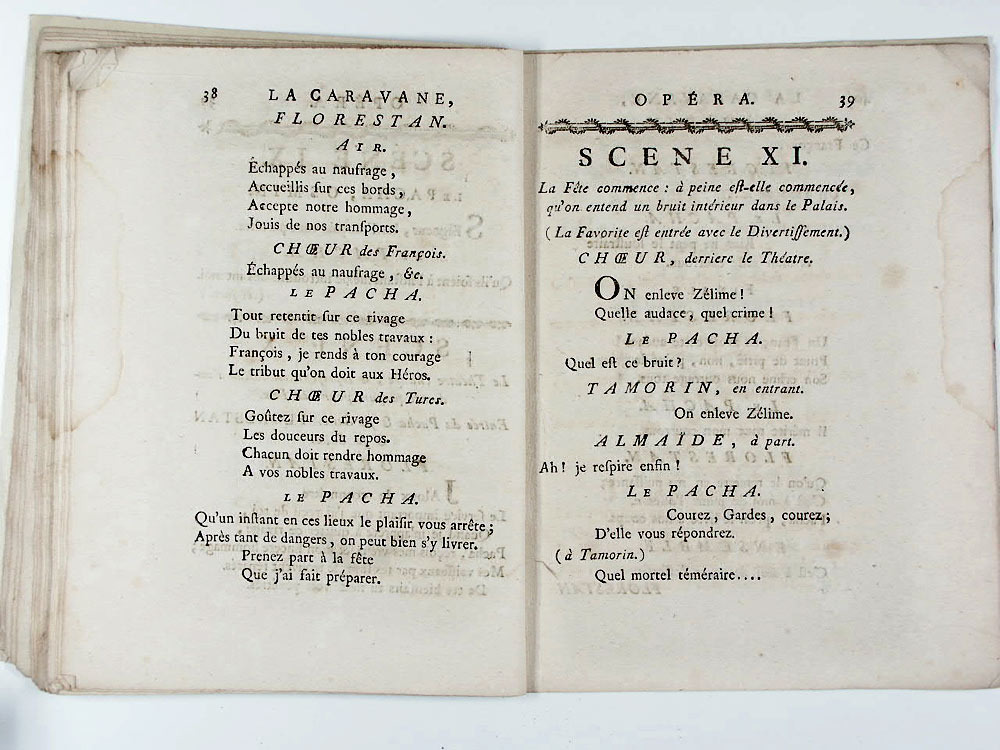 38 LA CARAVANE,
FLORESTAN.
AIR.
Échappés au naufrage,
Accueillis ſur ces bords,
Accepte notre hommage,
Jouis de nos tranſports.
CHŒUR des François.
Échappés au naufrage, &c.
LE PACHA.
Tout retentit ſur ce rivage
Du bruit de tes nobles travaux :
François, je rends à ton courage
Le tribut qu'on doit aux Héros.
CHŒUR des Turcs.
Goûtez ſur ce rivage
Les douceurs du repos.
Chacun doit rendre hommage
A vos nobles travaux.
LE PACHA.
Qu'un inſtant en ces lieux le plaiſir vous arrête ;
Après tant de dangers, on peut bien s'y livrer.
Prenez part à la fête
Que j'ai fait préparer.
OPÉRA. 39
SCENE XI.
La Fête commence : à peine eſt-elle commencée,
qu'on entend un bruit intérieur dans le Palais.
(La Favorite eſt entrée avec le Divertiſſement.)
CHŒUR, derriere le Théatre.
ON enleve Zélime !
Quelle audace, quel crime !
LE PACHA.
Quel eſt ce bruit ?
TAMORIN, en entrant.
On enleve Zélime.
ALMAÏDE, à part.
Ah ! je reſpire enfin !
LE PACHA.
Courez, Gardes, courez ;
D'elle vous répondrez.
(à Tamorin.)
Quel mortel téméraire....